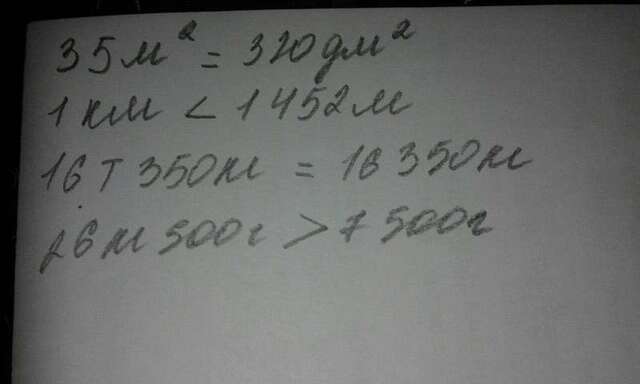 35 м² = 320 дм²
1 км < 1 452 м
16 т 350 кг = 16 350 кг
26 кг 500 г > 7 500 г